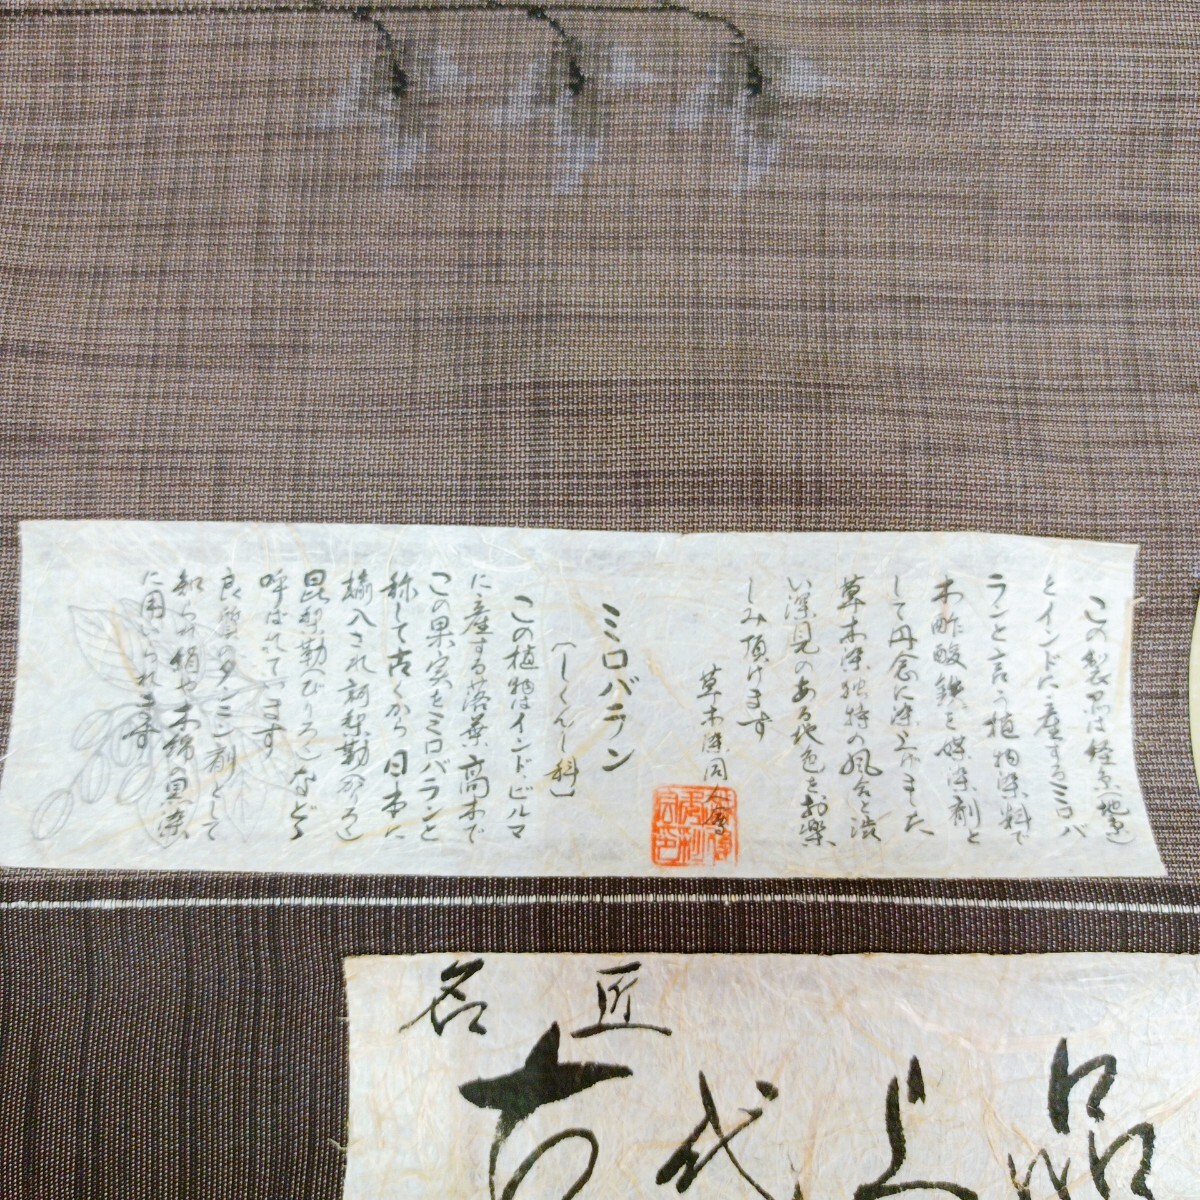 この製品は経糸(地糸)
とインドに産するミロバ
ランと言う植物染料で
木酢酸鉄を媒染剤と
して丹念に染上げました
草木染独特の風合と渋
い深見のある地色をお楽
しみ頂けます
草木染同人會
ミロバラン
(しくんし科)
この植物はインド、ビルマ
に産する落葉高木で
この果実をミロバランと
称して古くから日本に
輸入され訶梨勒(かりろく)
毘梨勒(びりろく)などゝ
呼ばれています
良質のタンニン剤として
知られ絹や木綿の黒染
に用いられます
名匠
古代上品